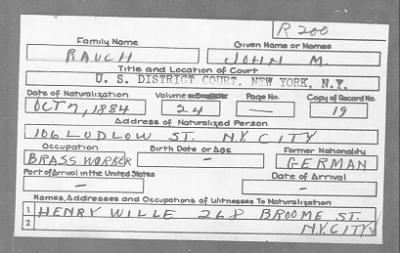 R 200
Family Name Given Name or Names
RAUCH JOHN M.
Title and Location of Court
U. S. DISTRICT COURT. NEW YORK, N.Y.
Date of Naturalization Volume or Bundle No Page No. Copy of Record No.
OCT 7, 1884 24 — 19
Address of Naturalized Person
106 LUDLOW ST. N.Y. CITY
Occupation Birth Date or Age Former Nationality
BRASS WORKER — GERMAN
Port of Arrival in the United States Date of Arrival
— —
Names, Addresses and Occupations of Witnesses To Naturalization
1 HENRY WILLE 268 BROOME ST.
2 N.Y. CITY